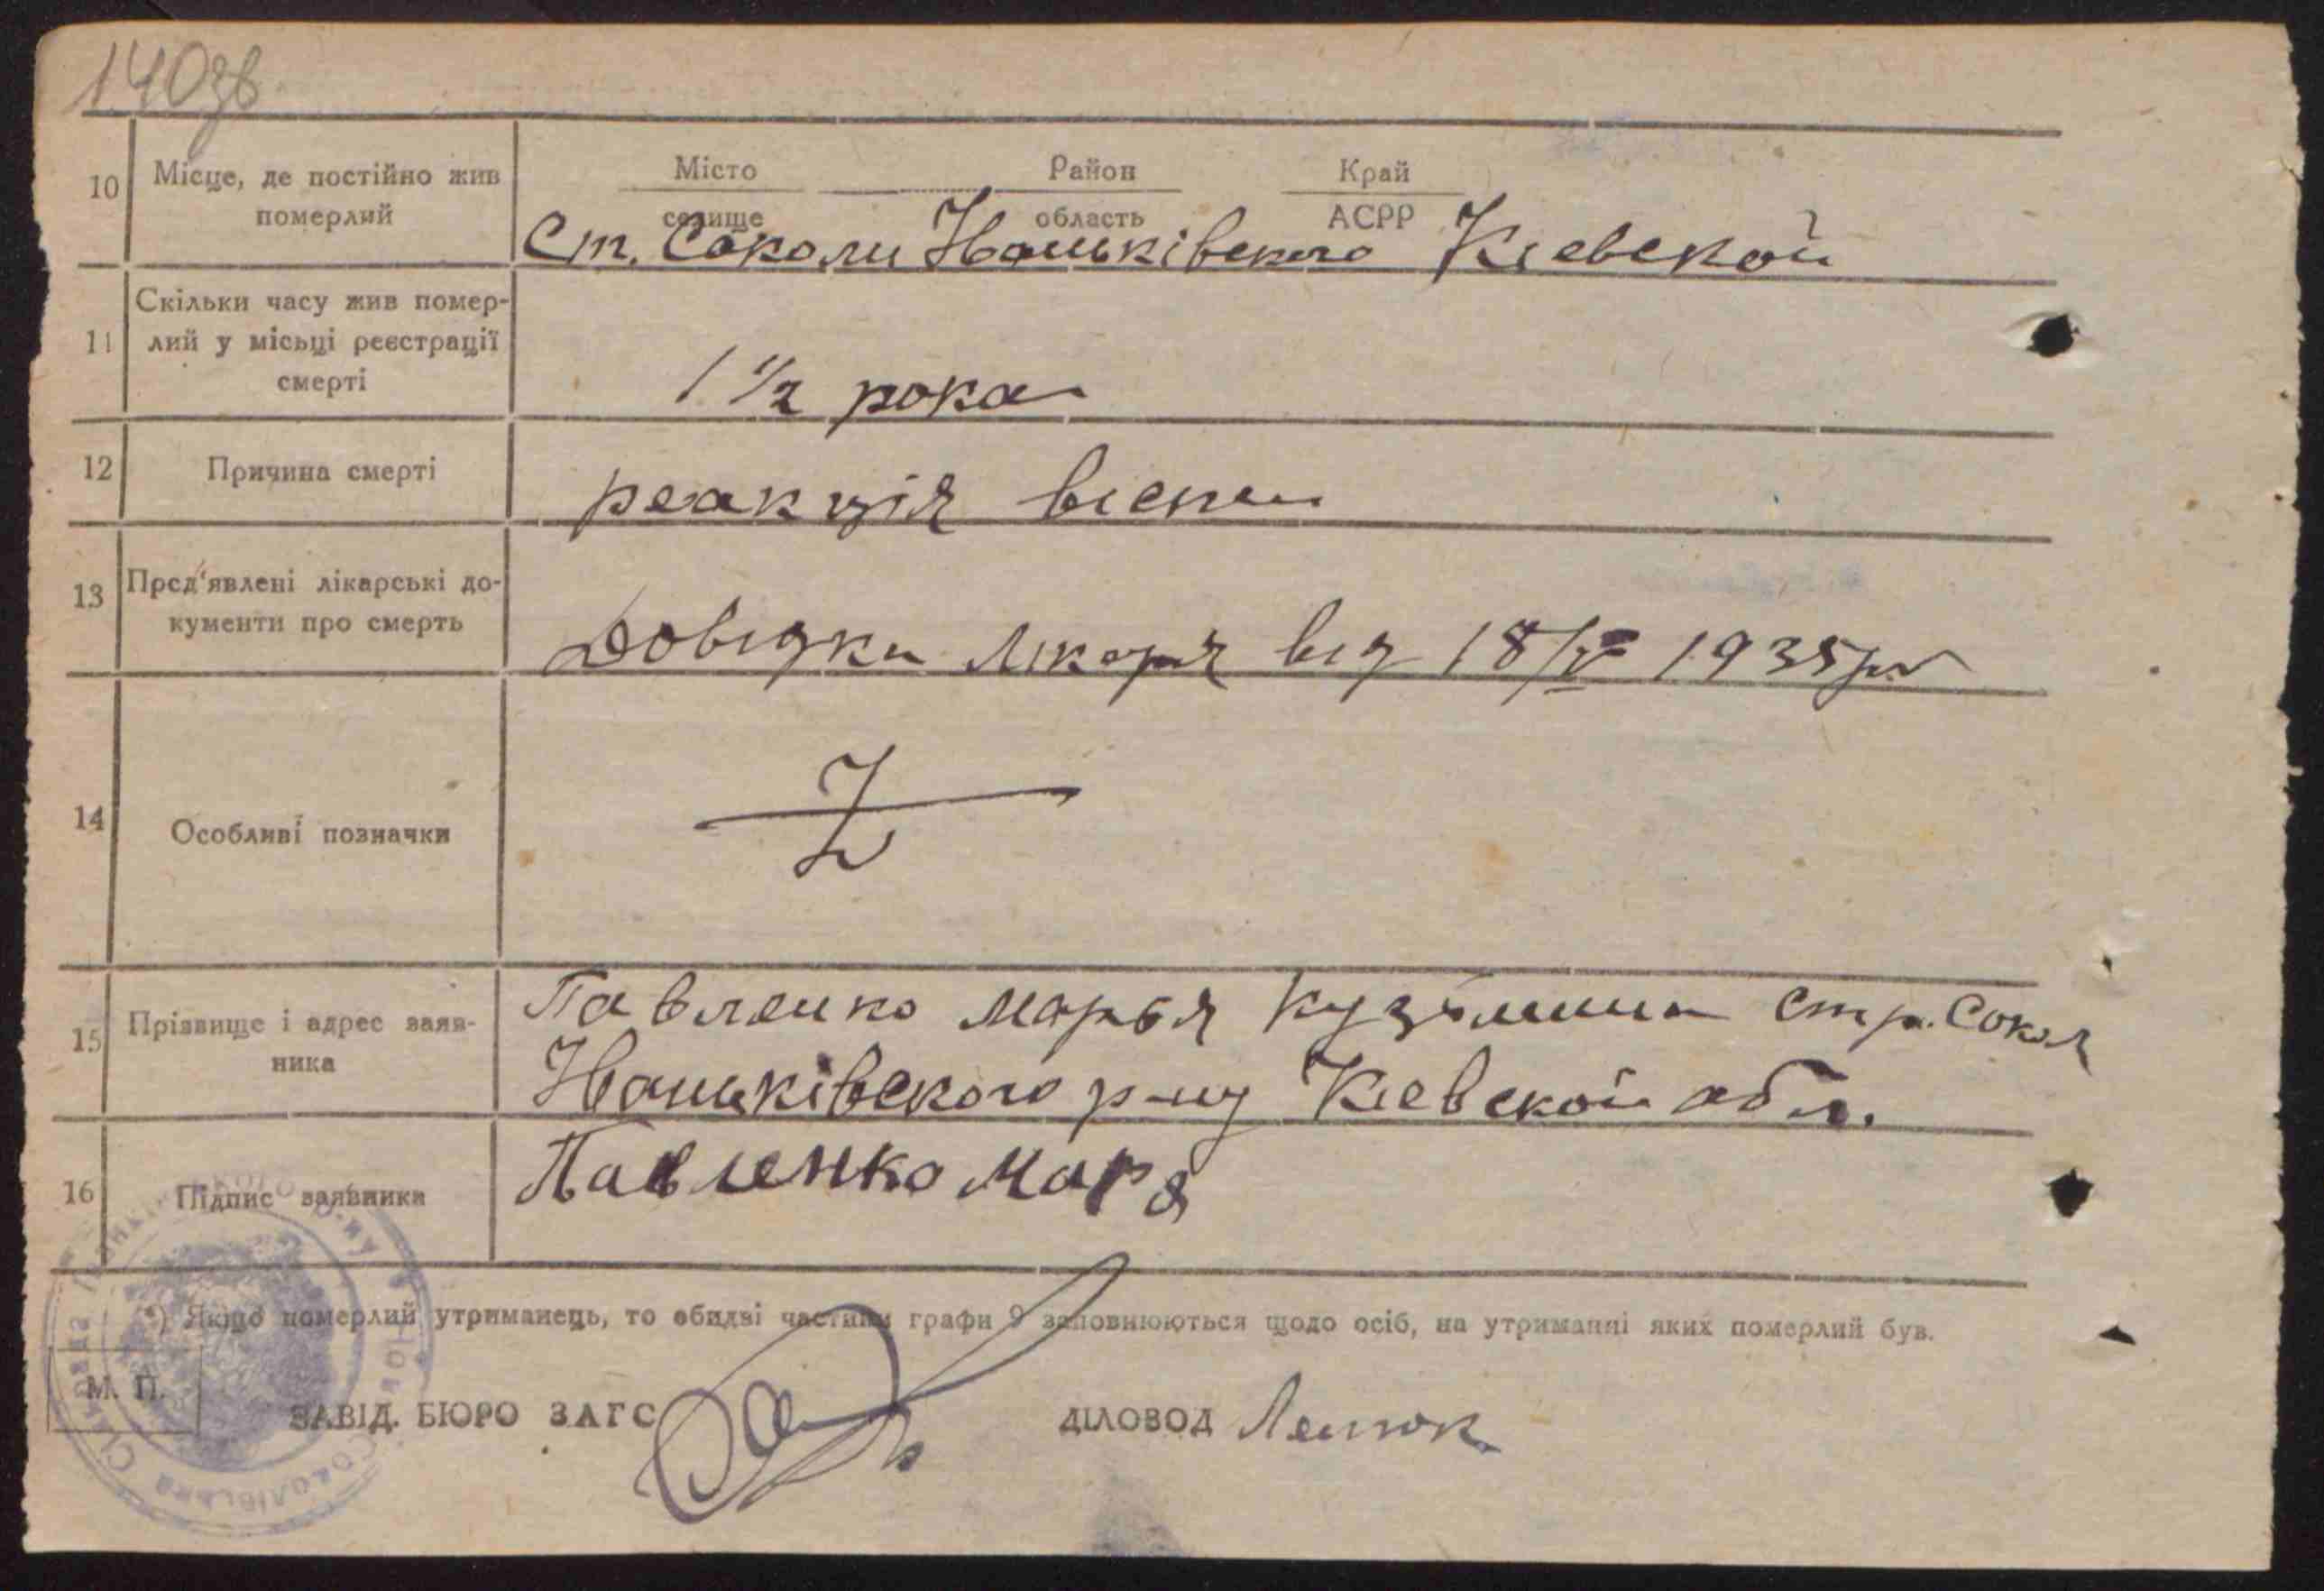 140зв
10 Місце, де постійно жив померлий
Місто Район Край
селище область АСРР
Ст. Соколи Іваньківского Кіевской
11 Скільки часу жив помер-
лий у місьці реєстрації
смерті
1 ½ рока
12 Причина смерті
реакція віспи
13 Пред'явлені лікарські до-
кументи про смерть
Довідки лікаря від 18/V 1935р
14 Особливі позначки
Z
15 Прізвище і адрес заяв-
ника
Павленко Марья Кузьминш стр. Сокол
Іваньківского р-ну Кіевской обл.
16 Підпис заявника
Павленко Маря
*) Якщо померлий утриманець, то обидві частини графи 9 заповнюються щодо осіб, на утриманні яких померлий був.
М. П.
ЗАВІД. БЮРО ЗАГС ДІЛОВОД